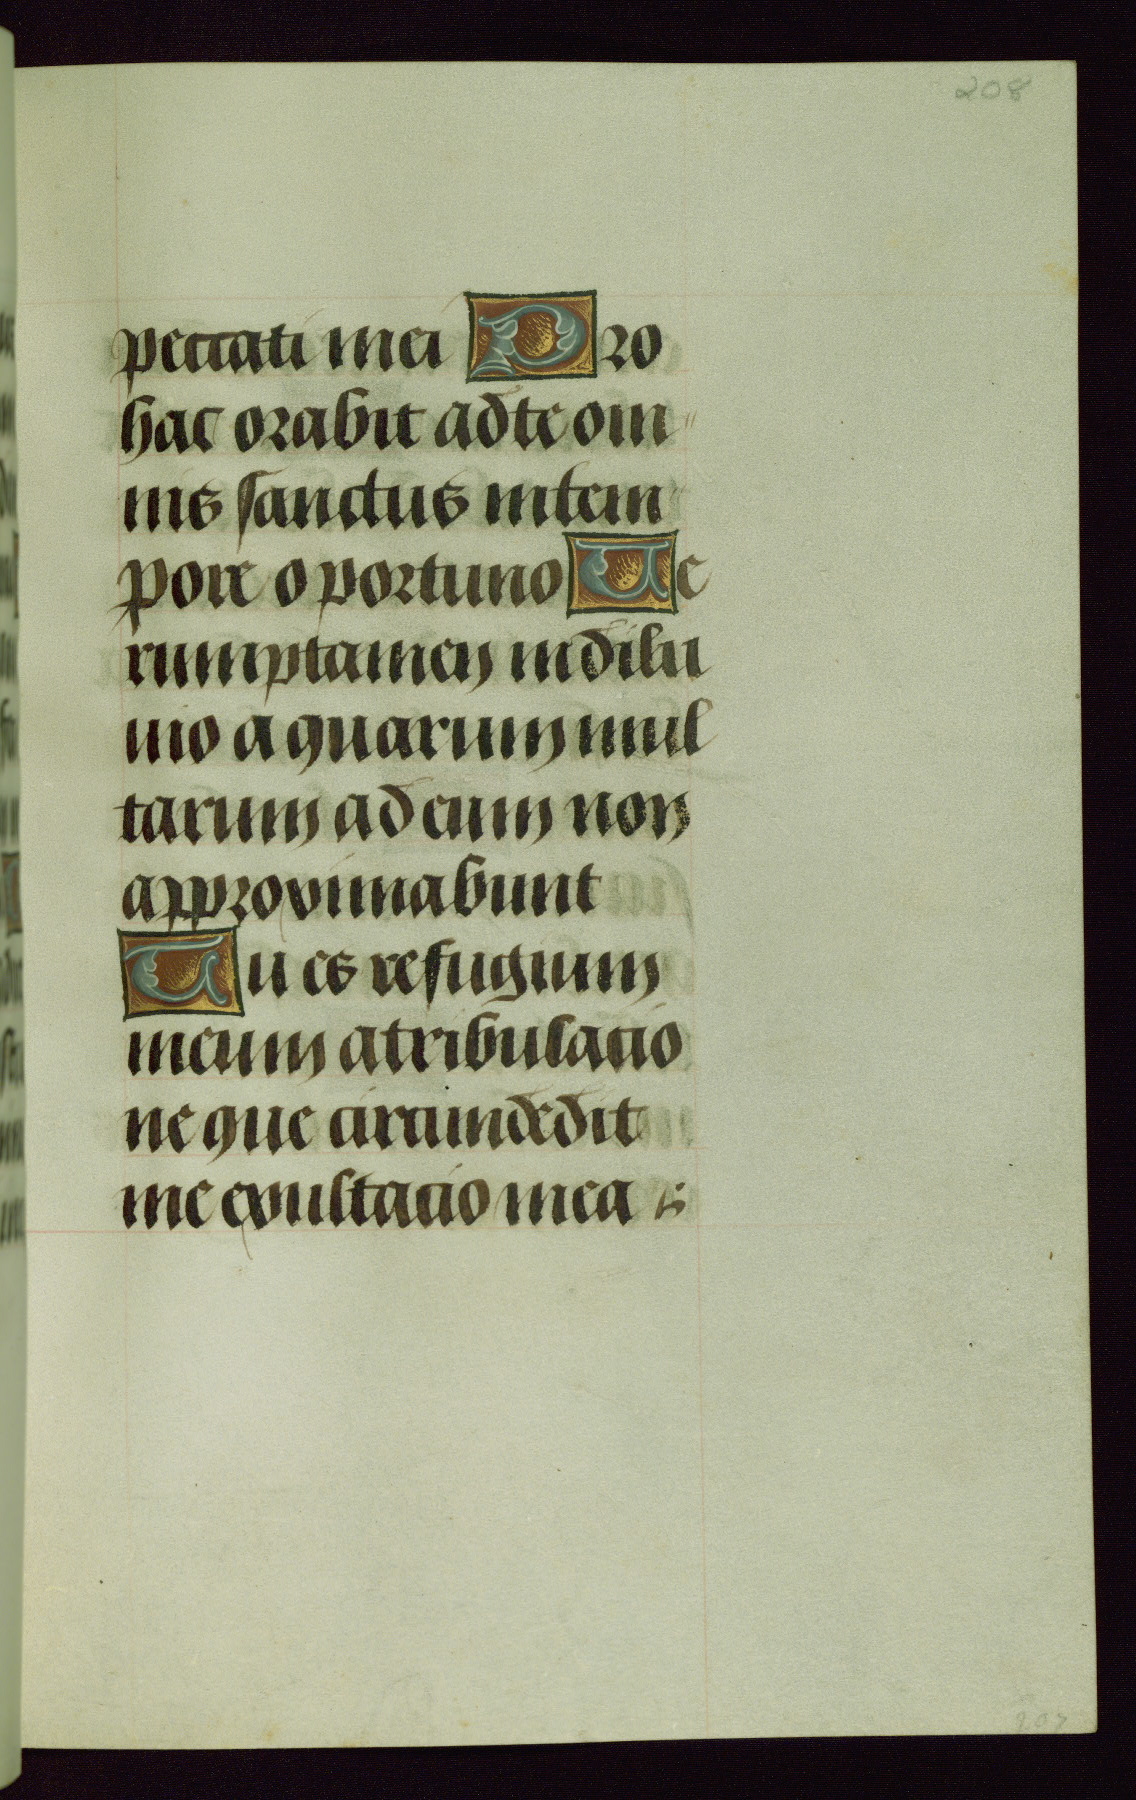 208
peccati mei Pro
hac orabit ad te om
nis sanctus in tem
pore oportuno Ue
rumptamen in dilu
uio aquarum mul
tarum ad eum non
approximabunt
Tu es refugium
meum a tribulacio
ne que circundedit
me exultacio mea
207